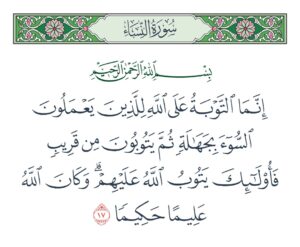 سُورَةُ النِّسَاءِ
بِسْمِ اللَّهِ الرَّحْمَٰنِ الرَّحِيمِ
إِنَّمَا ٱلتَّوْبَةُ عَلَى ٱللَّهِ لِلَّذِينَ يَعْمَلُونَ
ٱلسُّوٓءَ بِجَهَٰلَةٍ ثُمَّ يَتُوبُونَ مِن قَرِيبٍ
فَأُو۟لَٰٓئِكَ يَتُوبُ ٱللَّهُ عَلَيْهِمْ ۗ وَكَانَ ٱللَّهُ
عَلِيمًا حَكِيمًا ١٧